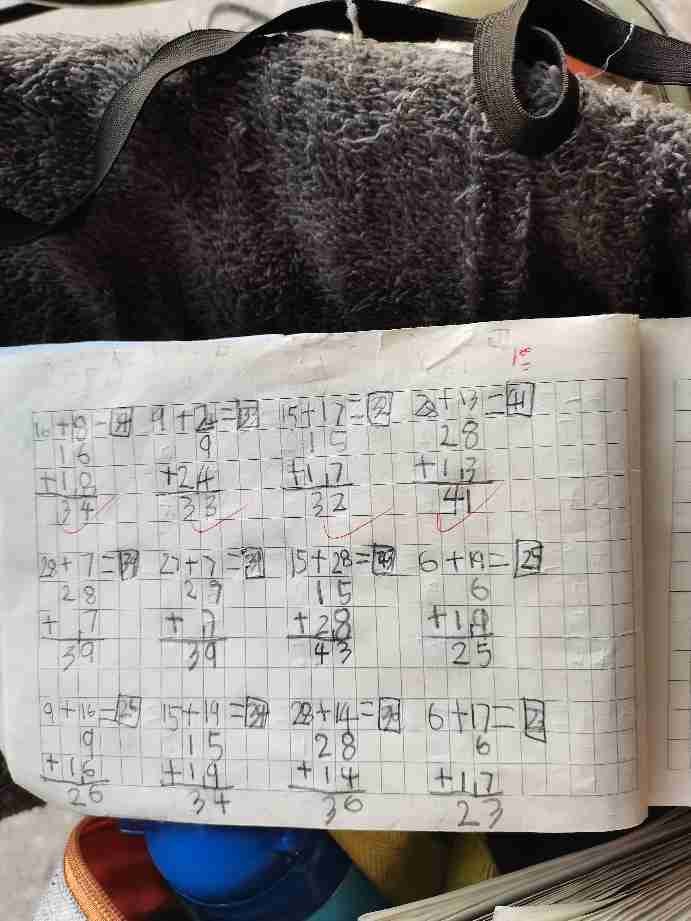 16+18=34 9+24=33 15+17=32 28+13=41
16 9 15 28
+18 +24 +17 +13
34 33 32 41
28+7=39 27+7=39 15+28=43 6+19=25
28 27 15 6
+7 +7 +28 +19
39 39 43 25
9+16=25 15+19=34 28+14=36 6+17=23
9 15 28 6
+16 +19 +14 +17
26 34 36 23